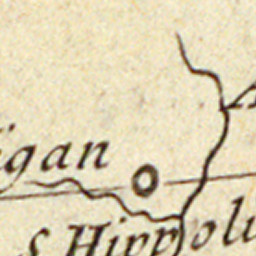 igan
S Hippolu